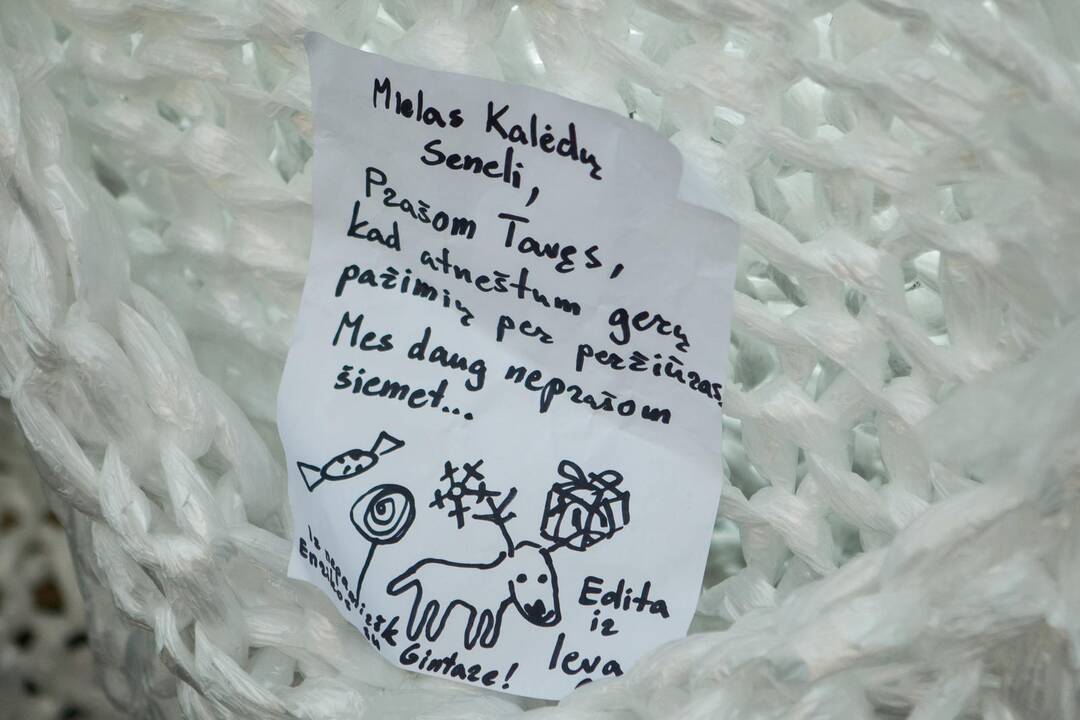 Mielas Kalėdų
Seneli,
Prašom Tavęs,
kad atneštum gerų
pažimių per peržiūras.
Mes daug neprašom
šiemet...
Edita
ir
Ieva
Ir nepa
Enrikos
ir Gintare!